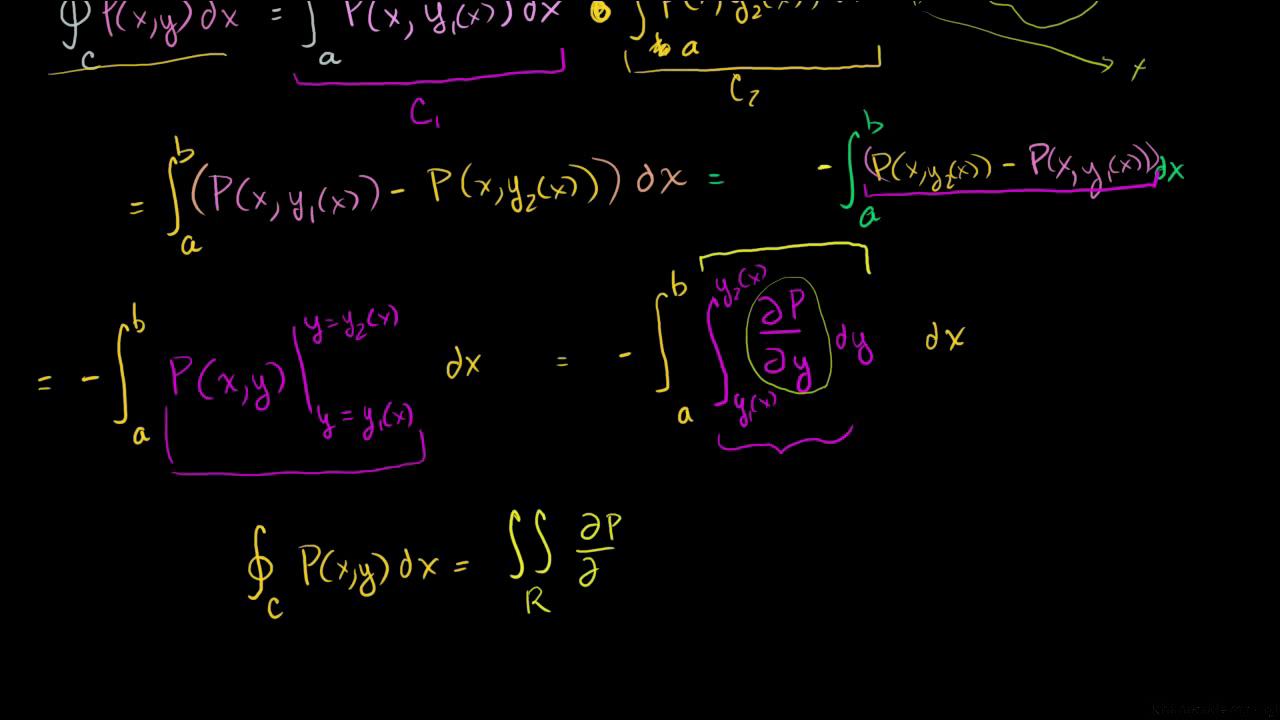 ∮_C P(x,y) dx = ∫_a P(x, y₁(x)) dx ∫_a P(x, y₂(x))
x
C₁ C₂
= ∫_a^b (P(x, y₁(x)) - P(x, y₂(x))) dx = - ∫_a^b (P(x, y₂(x)) - P(x, y₁(x))) dx
= - ∫_a^b P(x,y) |_{y = y₁(x)}^{y = y₂(x)} dx = - ∫_a^b ∫_{y₁(x)}^{y₂(x)} ∂P/∂y dy dx
∮_C P(x,y) dx = ∬_R ∂P/∂